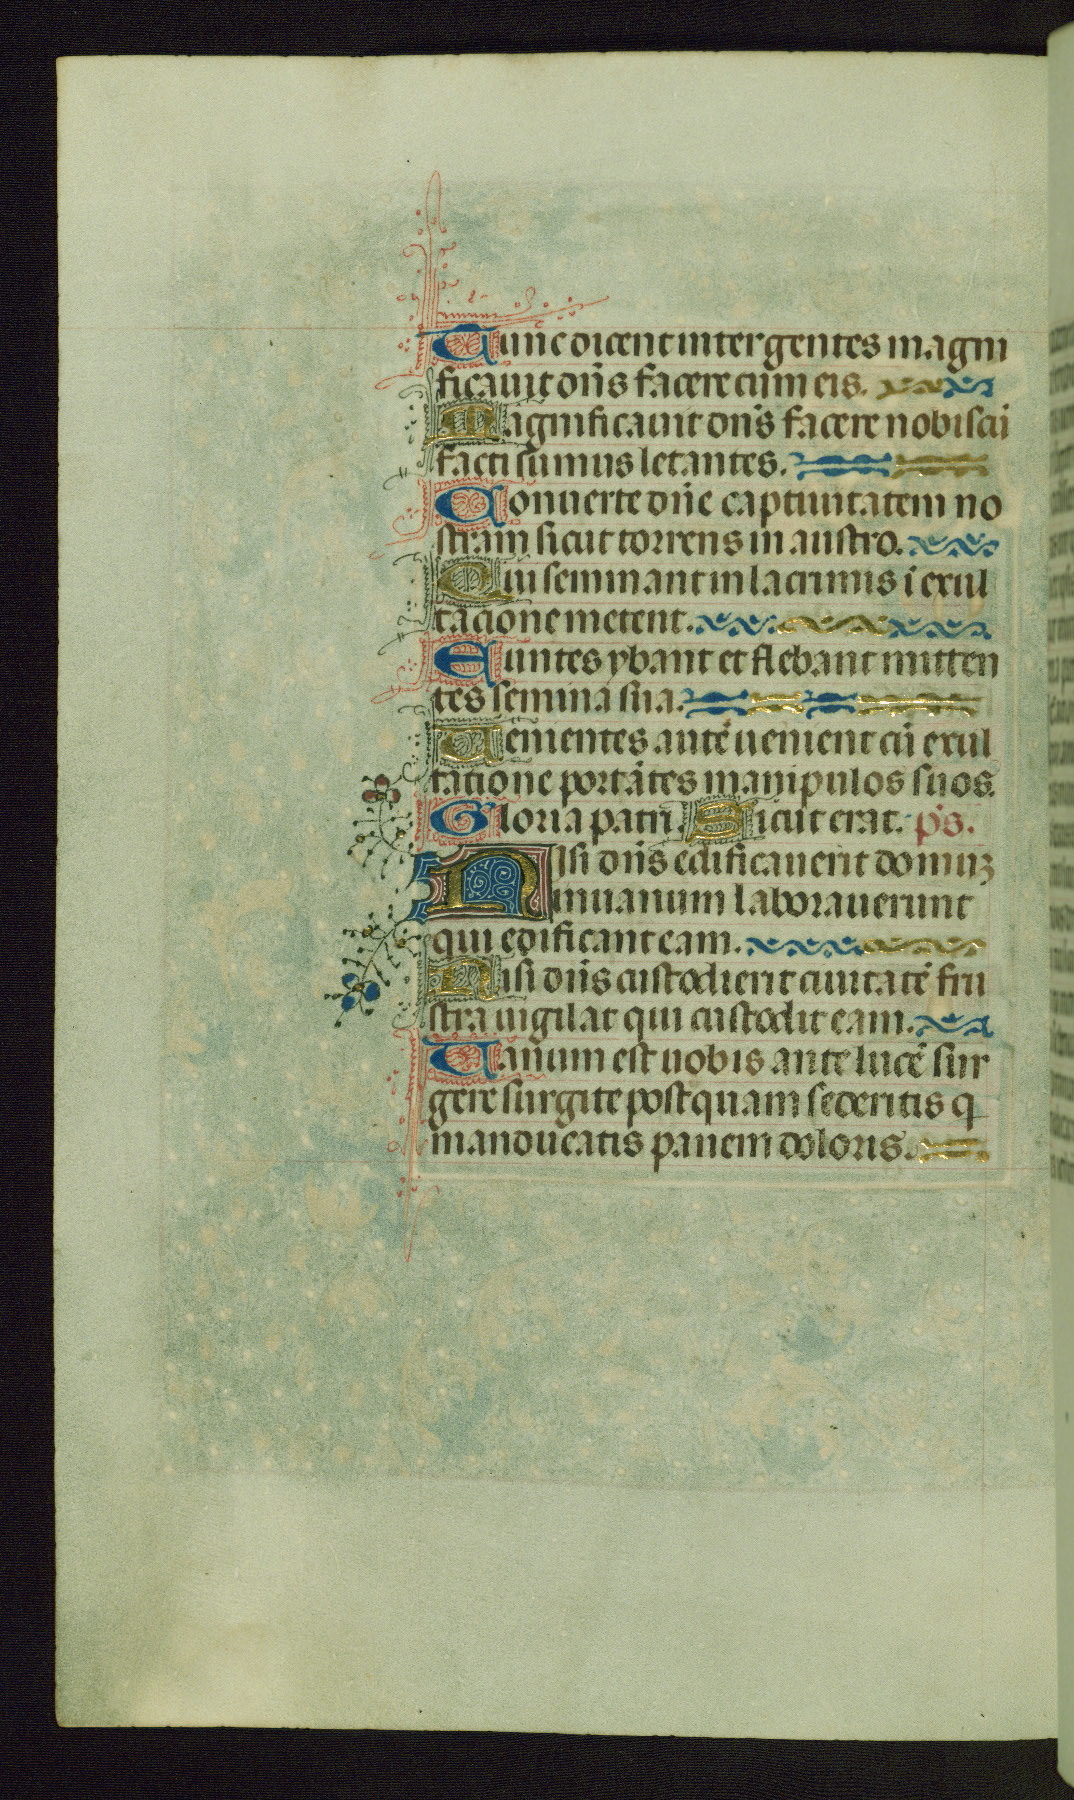 Tunc dicent inter gentes magni
ficauit dn̄s facere cum eis.
Magnificauit dn̄s facere nobiscū
facti sumus letantes.
Conuerte dn̄e captiuitatem no
stram sicut torrens in austro.
Qui seminant in lacrimis ī exul
tacione metent.
Euntes ybant et flebant mitten
tes semina sua.
Uenientes autē uenient cū exul
tatione portātes manipulos suos.
Gloria patri. Sicut erat. p̄s.
Nisi dn̄s edificauerit domuꝫ
inuanum laborauerunt
qui edificant eam.
Nisi dn̄s custodierit ciuitatē fru
stra uigilat qui custodit eam.
Uanum est uobis ante lucē sur
gere surgite postquam sederitis q
manducatis panem doloris.